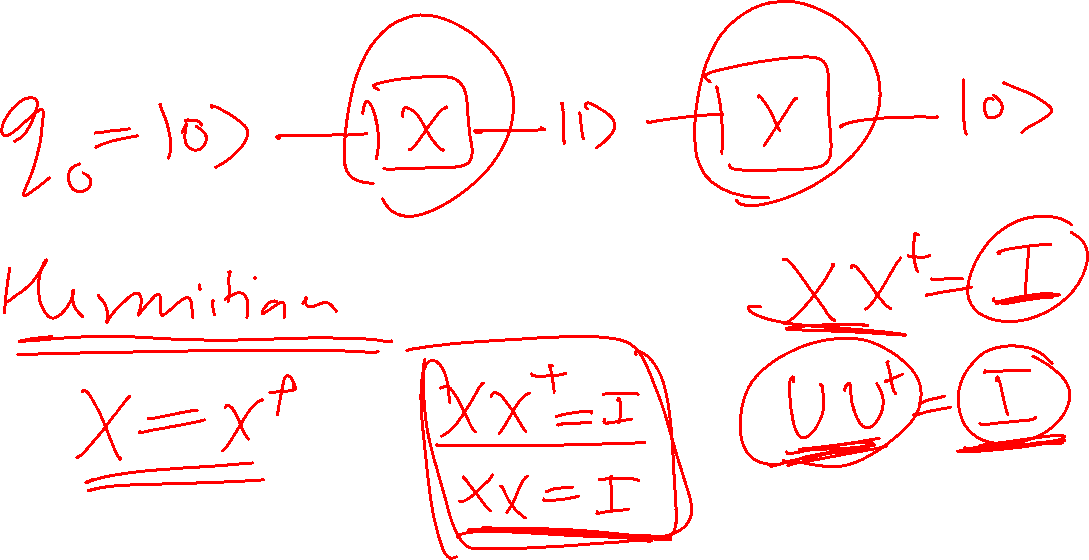 q₀ = |0⟩ — X — |1⟩ — Y — |0⟩
Hermitian
X = X†
XX† = I
XX = I
XX† = I
UU† = I